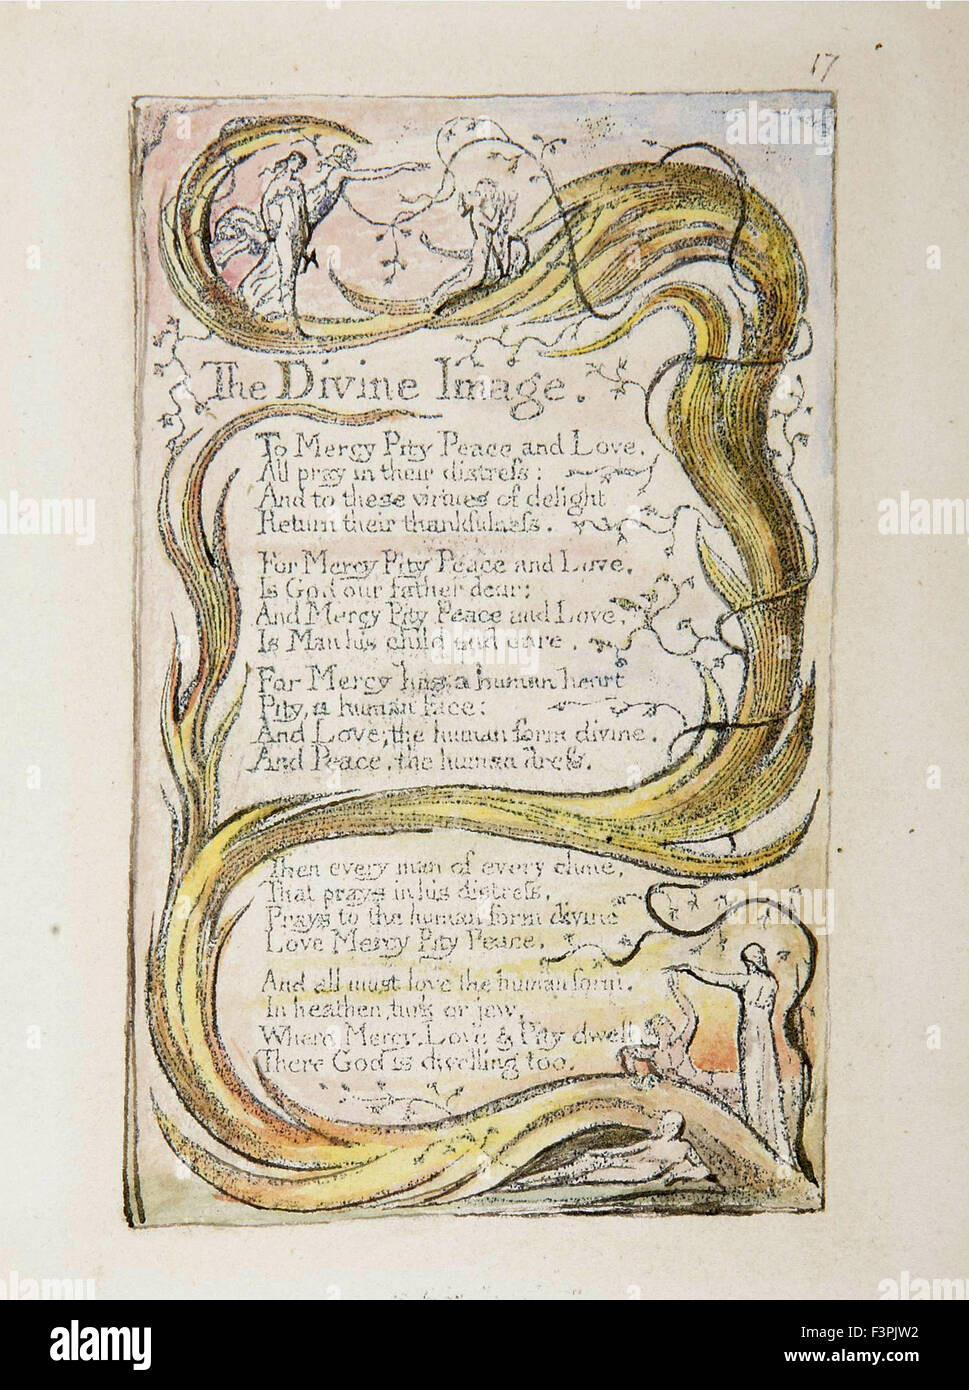 17
The Divine Image.
To Mercy Pity Peace and Love,
All pray in their distreſs:
And to these virtues of delight
Return their thankfulneſs.
For Mercy Pity Peace and Love,
Is God our father dear:
And Mercy Pity Peace and Love,
Is Man his child and care.
For Mercy has a human heart
Pity, a human face:
And Love, the human form divine,
And Peace, the human dreſs.
Then every man of every clime,
That prays in his distreſs,
Prays to the human form divine
Love Mercy Pity Peace.
And all must love the human form,
In heathen, turk or jew,
Where Mercy, Love & Pity dwell
There God is dwelling too.
alamy
Image ID: F3PJW2
www.alamy.com